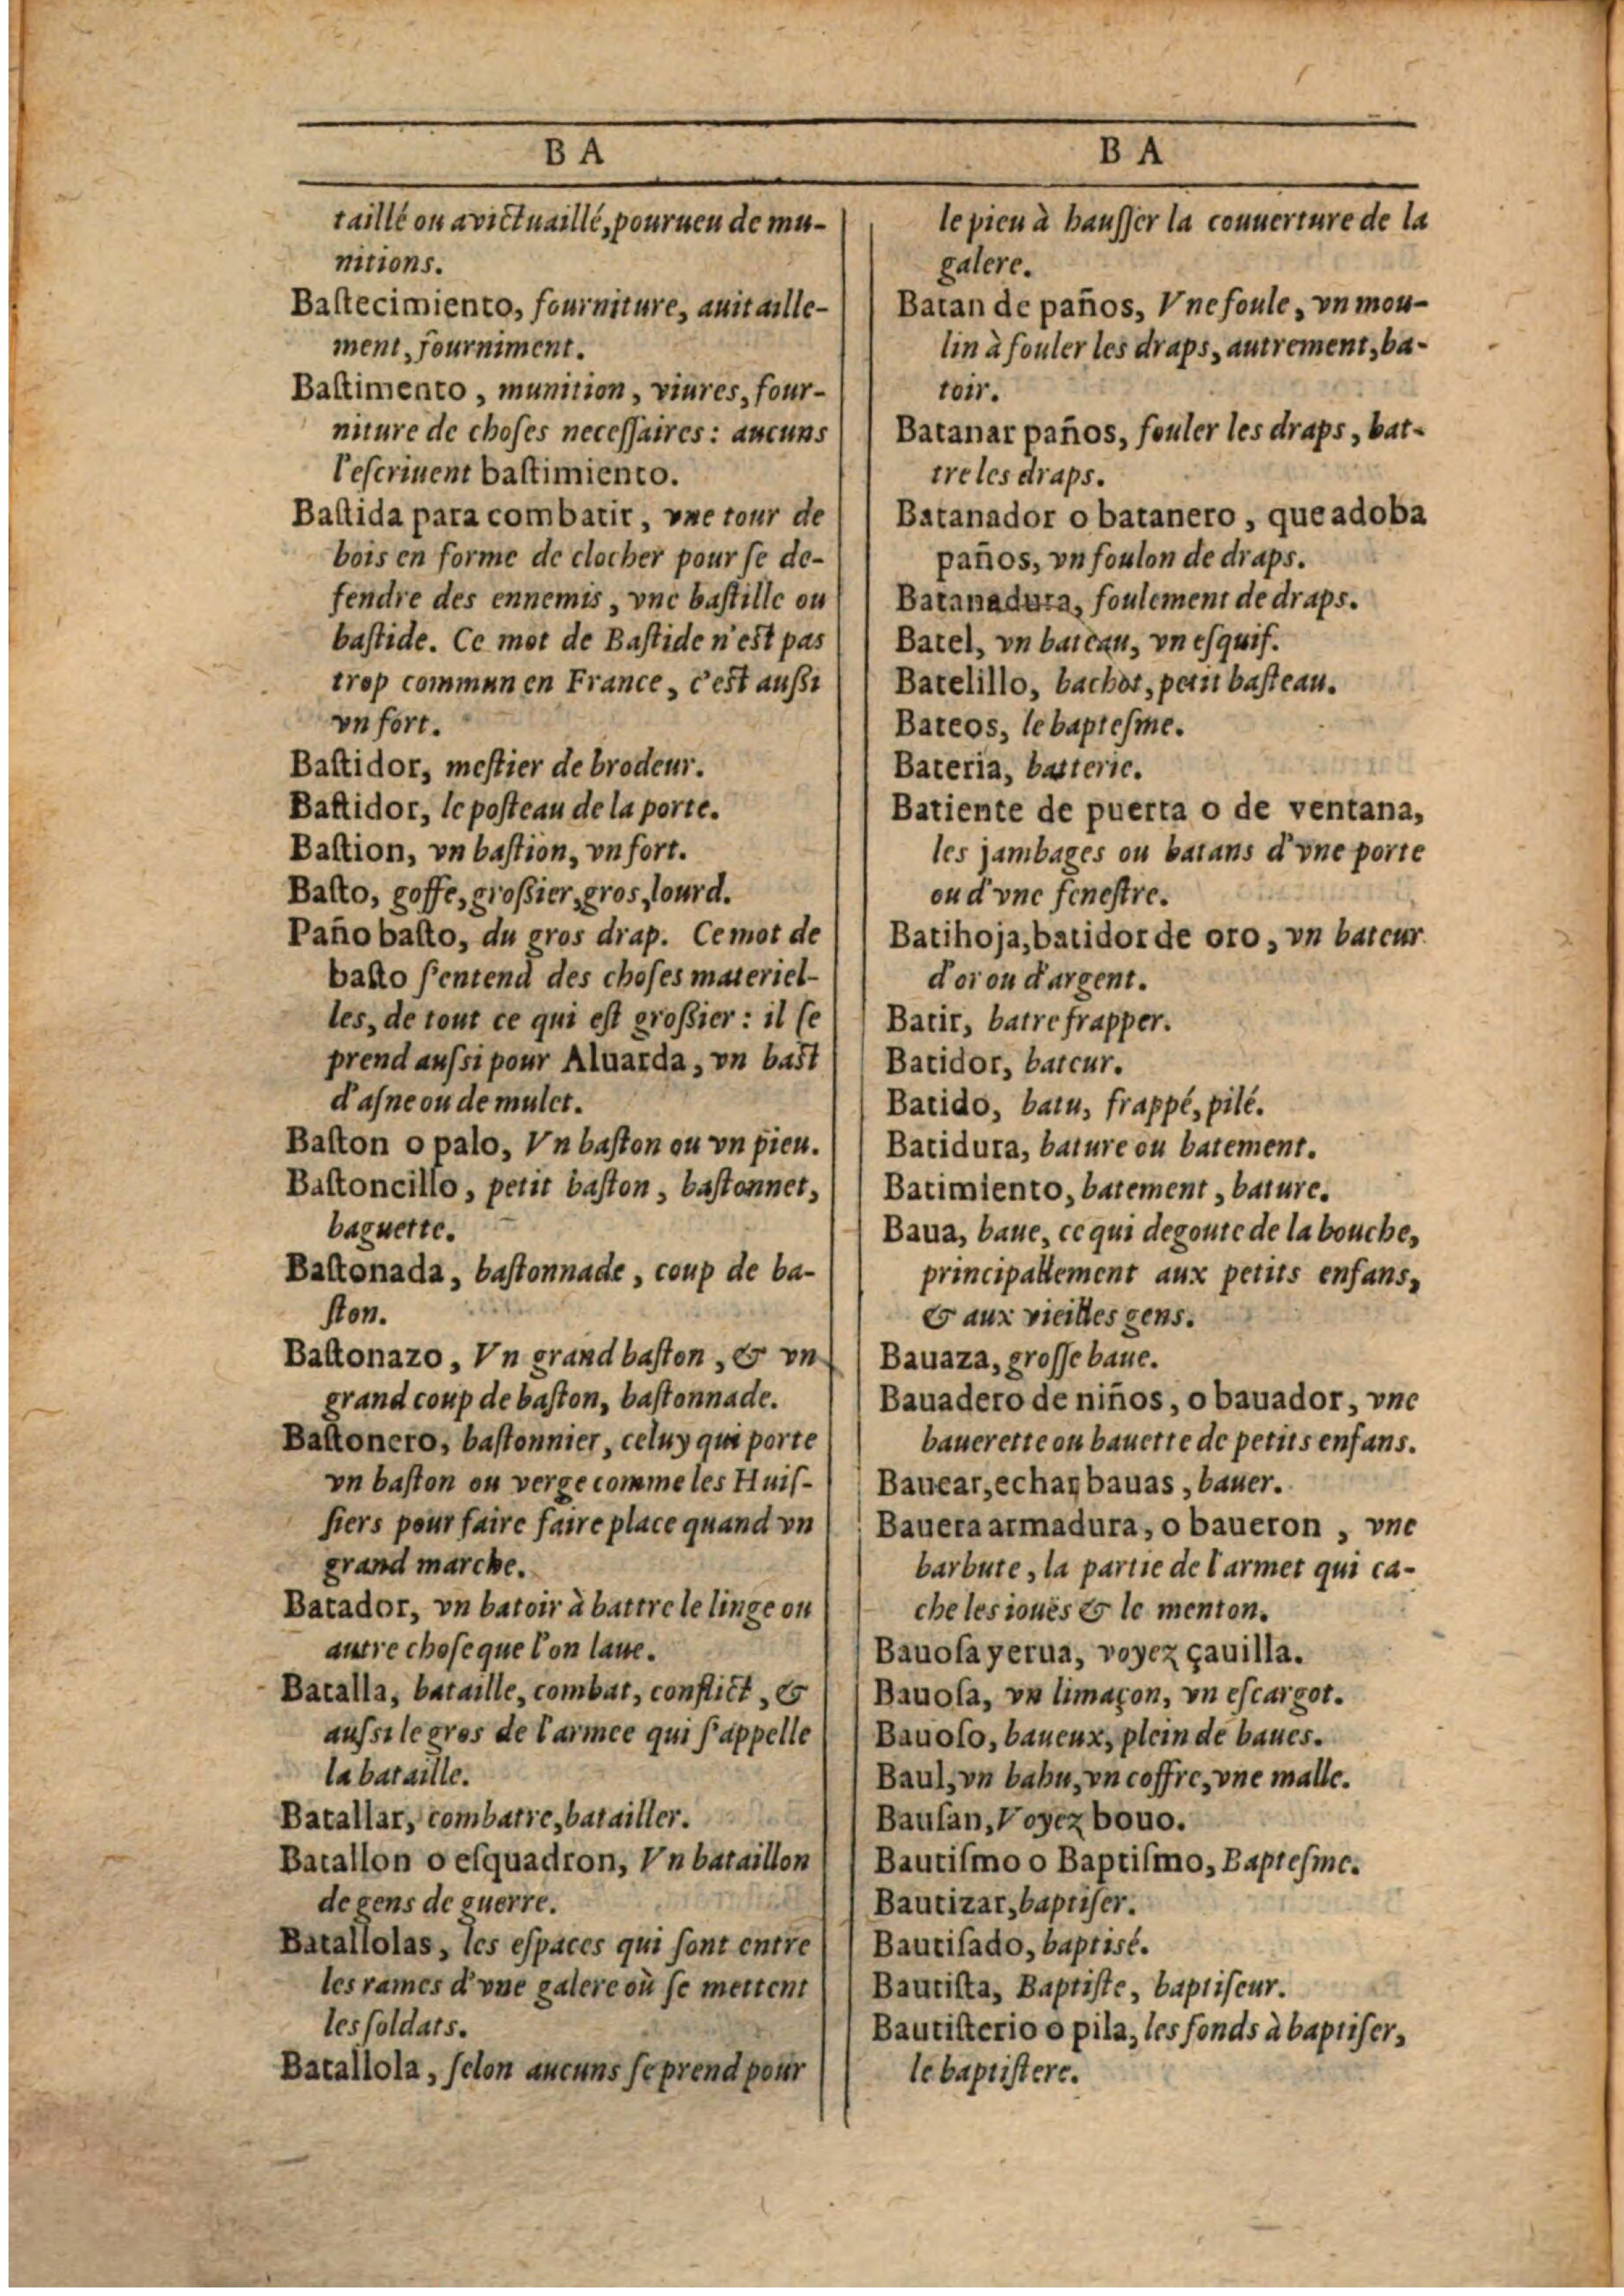 BA
taillé ou avictuaillé, pourueu de mu-
nitions.
Baſtecimiento, fourniture, auitaille-
ment, fourniment.
Baſtimento, munition, viures, four-
niture de choſes neceſſaires: aucuns
l'eſcriuent baſtimiento.
Baſtida para combatir, vne tour de
bois en forme de clocher pour ſe de-
fendre des ennemis, vne baſtille ou
baſtide. Ce mot de Baſtide n'eſt pas
trop commun en France, c'eſt auſsi
vn fort.
Baſtidor, meſtier de brodeur.
Baſtidor, le poſteau de la porte.
Baſtion, vn baſtion, vn fort.
Baſto, goffe, groſsier, gros, lourd.
Paño baſto, du gros drap. Ce mot de
baſto ſ'entend des choſes materiel-
les, de tout ce qui eſt groſsier: il ſe
prend auſsi pour Aluarda, vn baſt
d'aſne ou de mulet.
Baſton o palo, Vn baſton ou vn pieu.
Baſtoncillo, petit baſton, baſtonnet,
baguette.
Baſtonada, baſtonnade, coup de ba-
ſton.
Baſtonazo, Vn grand baſton, & vn
grand coup de baſton, baſtonnade.
Baſtonero, baſtonnier, celuy qui porte
vn baſton ou verge comme les Huiſ-
ſiers pour faire faire place quand vn
grand marche.
Batador, vn batoir à battre le linge ou
autre choſe que l'on laue.
Batalla, bataille, combat, conflict, &
auſsi le gros de l'armee qui ſ'appelle
la bataille.
Batallar, combatre, batailler.
Batallon o eſquadron, Vn bataillon
de gens de guerre.
Batallolas, les eſpaces qui ſont entre
les rames d'vne galere où ſe mettent
les ſoldats.
Batallola, ſelon aucuns ſe prend pour
BA
le pieu à hauſſer la couuerture de la
galere.
Batan de paños, Vne foule, vn mou-
lin à fouler les draps, autrement, ba-
toir.
Batanar paños, fouler les draps, bat-
tre les draps.
Batanador o batanero, que adoba
paños, vn foulon de draps.
Batanadura, foulement de draps.
Batel, vn bateau, vn eſquif.
Batelillo, bachot, petit baſteau.
Bateos, le bapteſme.
Bateria, batterie.
Batiente de puerta o de ventana,
les jambages ou batans d'vne porte
ou d'vne feneſtre.
Batihoja, batidor de oro, vn bateur
d'or ou d'argent.
Batir, batre frapper.
Batidor, bateur.
Batido, batu, frappé, pilé.
Batidura, bature ou batement.
Batimiento, batement, bature.
Baua, baue, ce qui degoute de la bouche,
principallement aux petits enfans,
& aux vieilles gens.
Bauaza, groſſe baue.
Bauadero de niños, o bauador, vne
bauerette ou bauette de petits enfans.
Bauear, echar bauas, bauer.
Bauera armadura, o baueron, vne
barbute, la partie de l'armet qui ca-
che les ioues & le menton.
Bauoſa yerua, voyez çauilla.
Bauoſa, vn limaçon, vn eſcargot.
Bauoſo, baueux, plein de baues.
Baul, vn bahu, vn coffre, vne malle.
Bauſan, Voyez bouo.
Bautiſmo o Baptiſmo, Bapteſme.
Bautizar, baptiſer.
Bautiſado, baptisé.
Bautiſta, Baptiſte, baptiſeur.
Bautiſterio o pila, les fonds à baptiſer,
le baptiſtere.